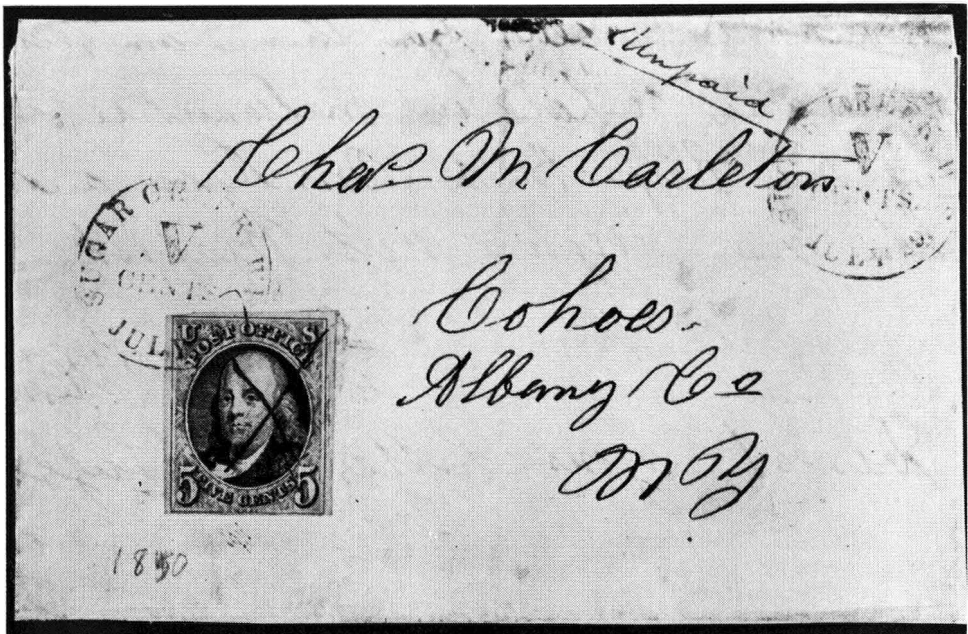 Unpaid
Chas M Carleton
Cohoes.
Albany Co
N Y
SUGAR
V
CENTS
JUL
V
CENTS
U S
POST OFFICE
5 FIVE CENTS 5
1850